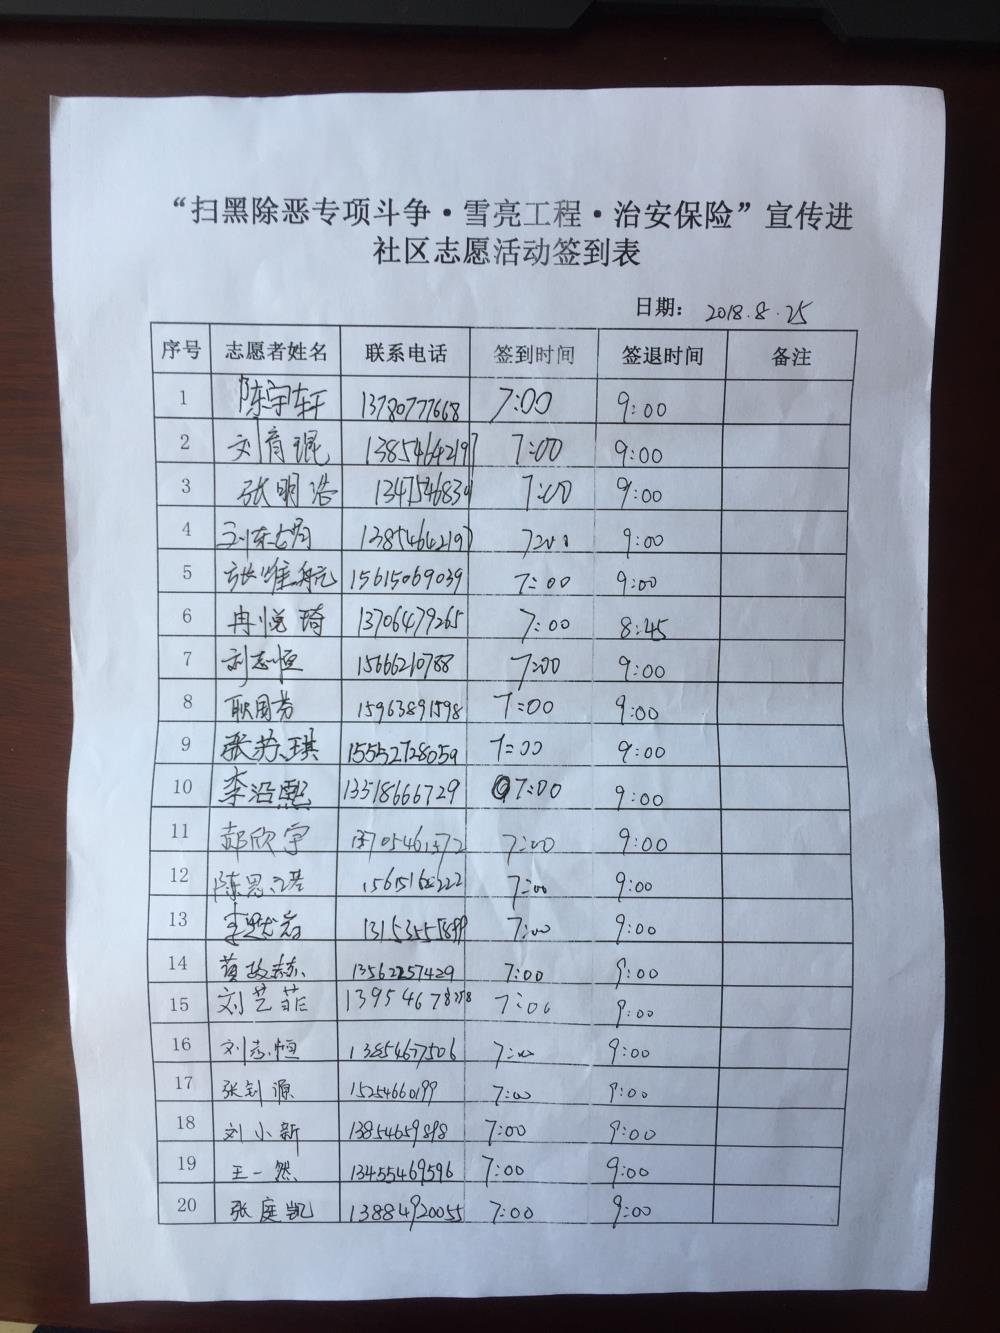 “扫黑除恶专项斗争·雪亮工程·治安保险”宣传进
社区志愿活动签到表
日期： 2018.8.25
序号 志愿者姓名 联系电话 签到时间 签退时间 备注
1 陈宇轩 13780777668 7:00 9:00
2 刘育琨 13854642197 7:00 9:00
3 张明浩 7:00 9:00
4 13854642197 7:00 9:00
5 张惟航 15615069039 7:00 9:00
6 冉悦琦 13706479265 7:00 8:45
7 刘志恒 15666210788 7:00 9:00
8 耿国芳 15963891598 7:00 9:00
9 张芳琪 15552728059 7:00 9:00
10 李沿熙 13518666729 7:00 9:00
11 郝欣宇 13705461372 7:00 9:00
12 陈思诺 7:00 9:00
13 李默岩 7:00 9:00
14 13562257429 7:00 9:00
15 刘艺菲 7:00 9:00
16 刘志恒 13854677506 7:00 9:00
17 张钊源 15254660199 7:00 9:00
18 刘小新 13854659898 7:00 9:00
19 王一然 13455469596 7:00 9:00
20 张庭凯 13884920055 7:00 9:00